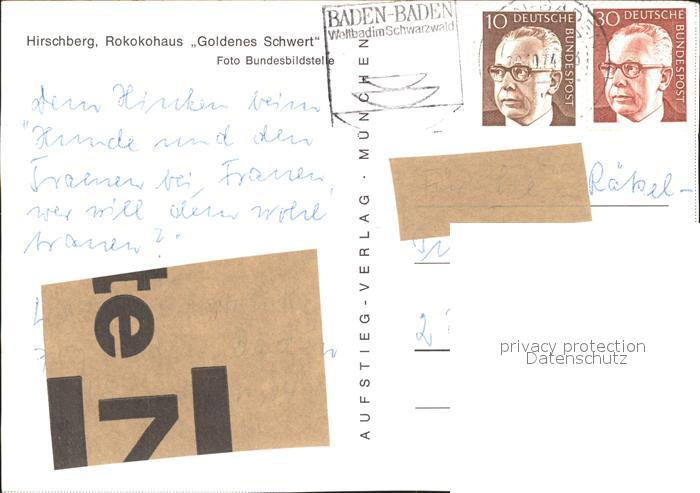 Hirschberg, Rokokohaus „Goldenes Schwert"
Foto Bundesbildstelle
Dem Hinken beim
"Hunde und den
Traenen bei Frauen,
wer will dem wohl
trauen?"
te
AUFSTIEG-VERLAG · MÜNCHEN
BADEN-BADEN
Weltbad im Schwarzwald
10 DEUTSCHE
BUNDESPOST
30 DEUTSCHE
BUNDESPOST
Rätsel-
privacy protection
Datenschutz